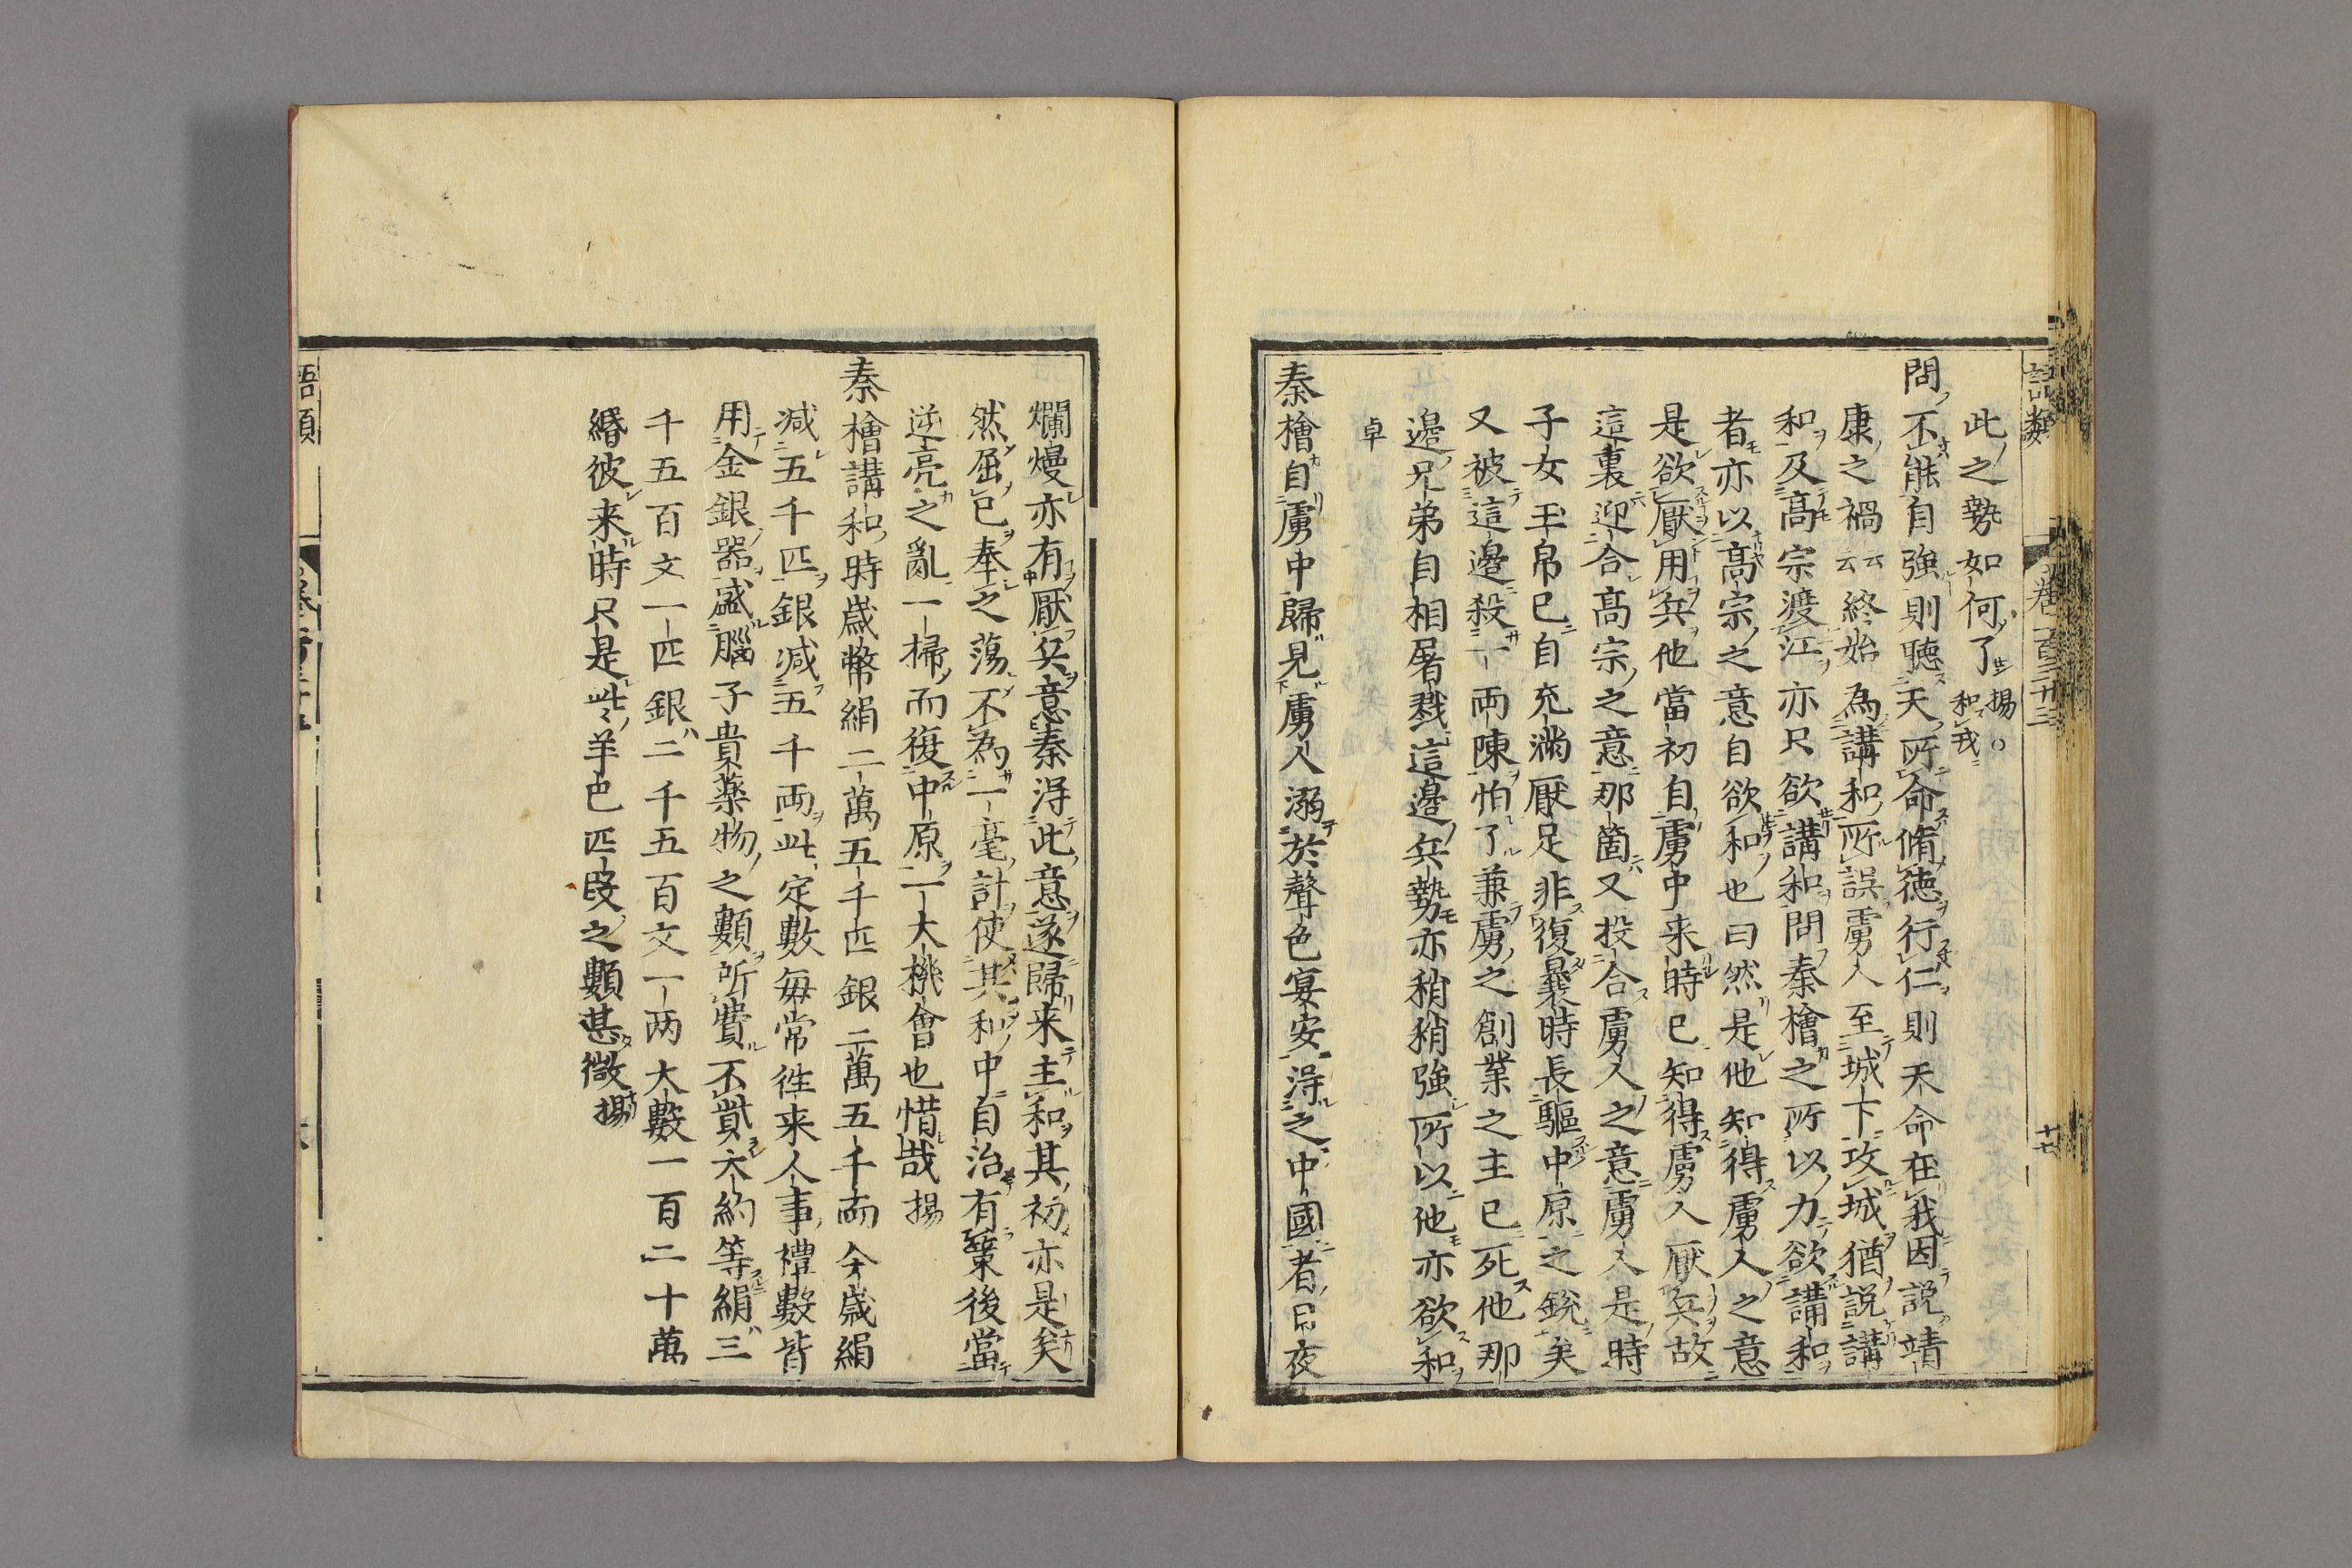 語類
卷一百三十三
十七
此之勢如何了 揚○和戎
問不能自強則聽天所命脩德行仁則天命在我因說靖
康之禍云云終始為講和所誤虜人至城下攻城猶説講
和及高宗渡江亦只欲講和問秦檜之所以力欲講和
者亦以高宗之意自欲和也曰然是他知得虜人之意
是欲厭用兵他當初自虜中来時已知得虜人厭兵故
這裏迎合高宗之意那箇又投合虜人之意虜人是時
子女玉帛已自充滿厭足非復曩時長驅中原之銳矣
又被這邊殺一兩陳怕了兼虜之創業之主已死他那
邊兄弟自相屠戮這邊兵勢亦稍稍強所以他亦欲和
卓
秦檜自虜中歸見虜人溺於聲色宴安得之中國者日夜
爛熳亦有厭兵意秦得此意遂歸来主和其初亦是矣
然屈已奉之蕩不為一毫計使其和中自治有策後當
逆亮之亂一掃而復中原一大機會也惜哉 揚
秦檜講和時歲幣絹二萬五千匹銀二萬五千兩今歲絹
減五千匹銀減五千兩此定數每常徃来人事禮數皆
用金銀器盛腦子貴薬物之類所費不貲大約等絹三
千五百文一匹銀二千五百文一两大數一百二十萬
緡彼来時只是此羊色匹段之類甚微 揚
語類